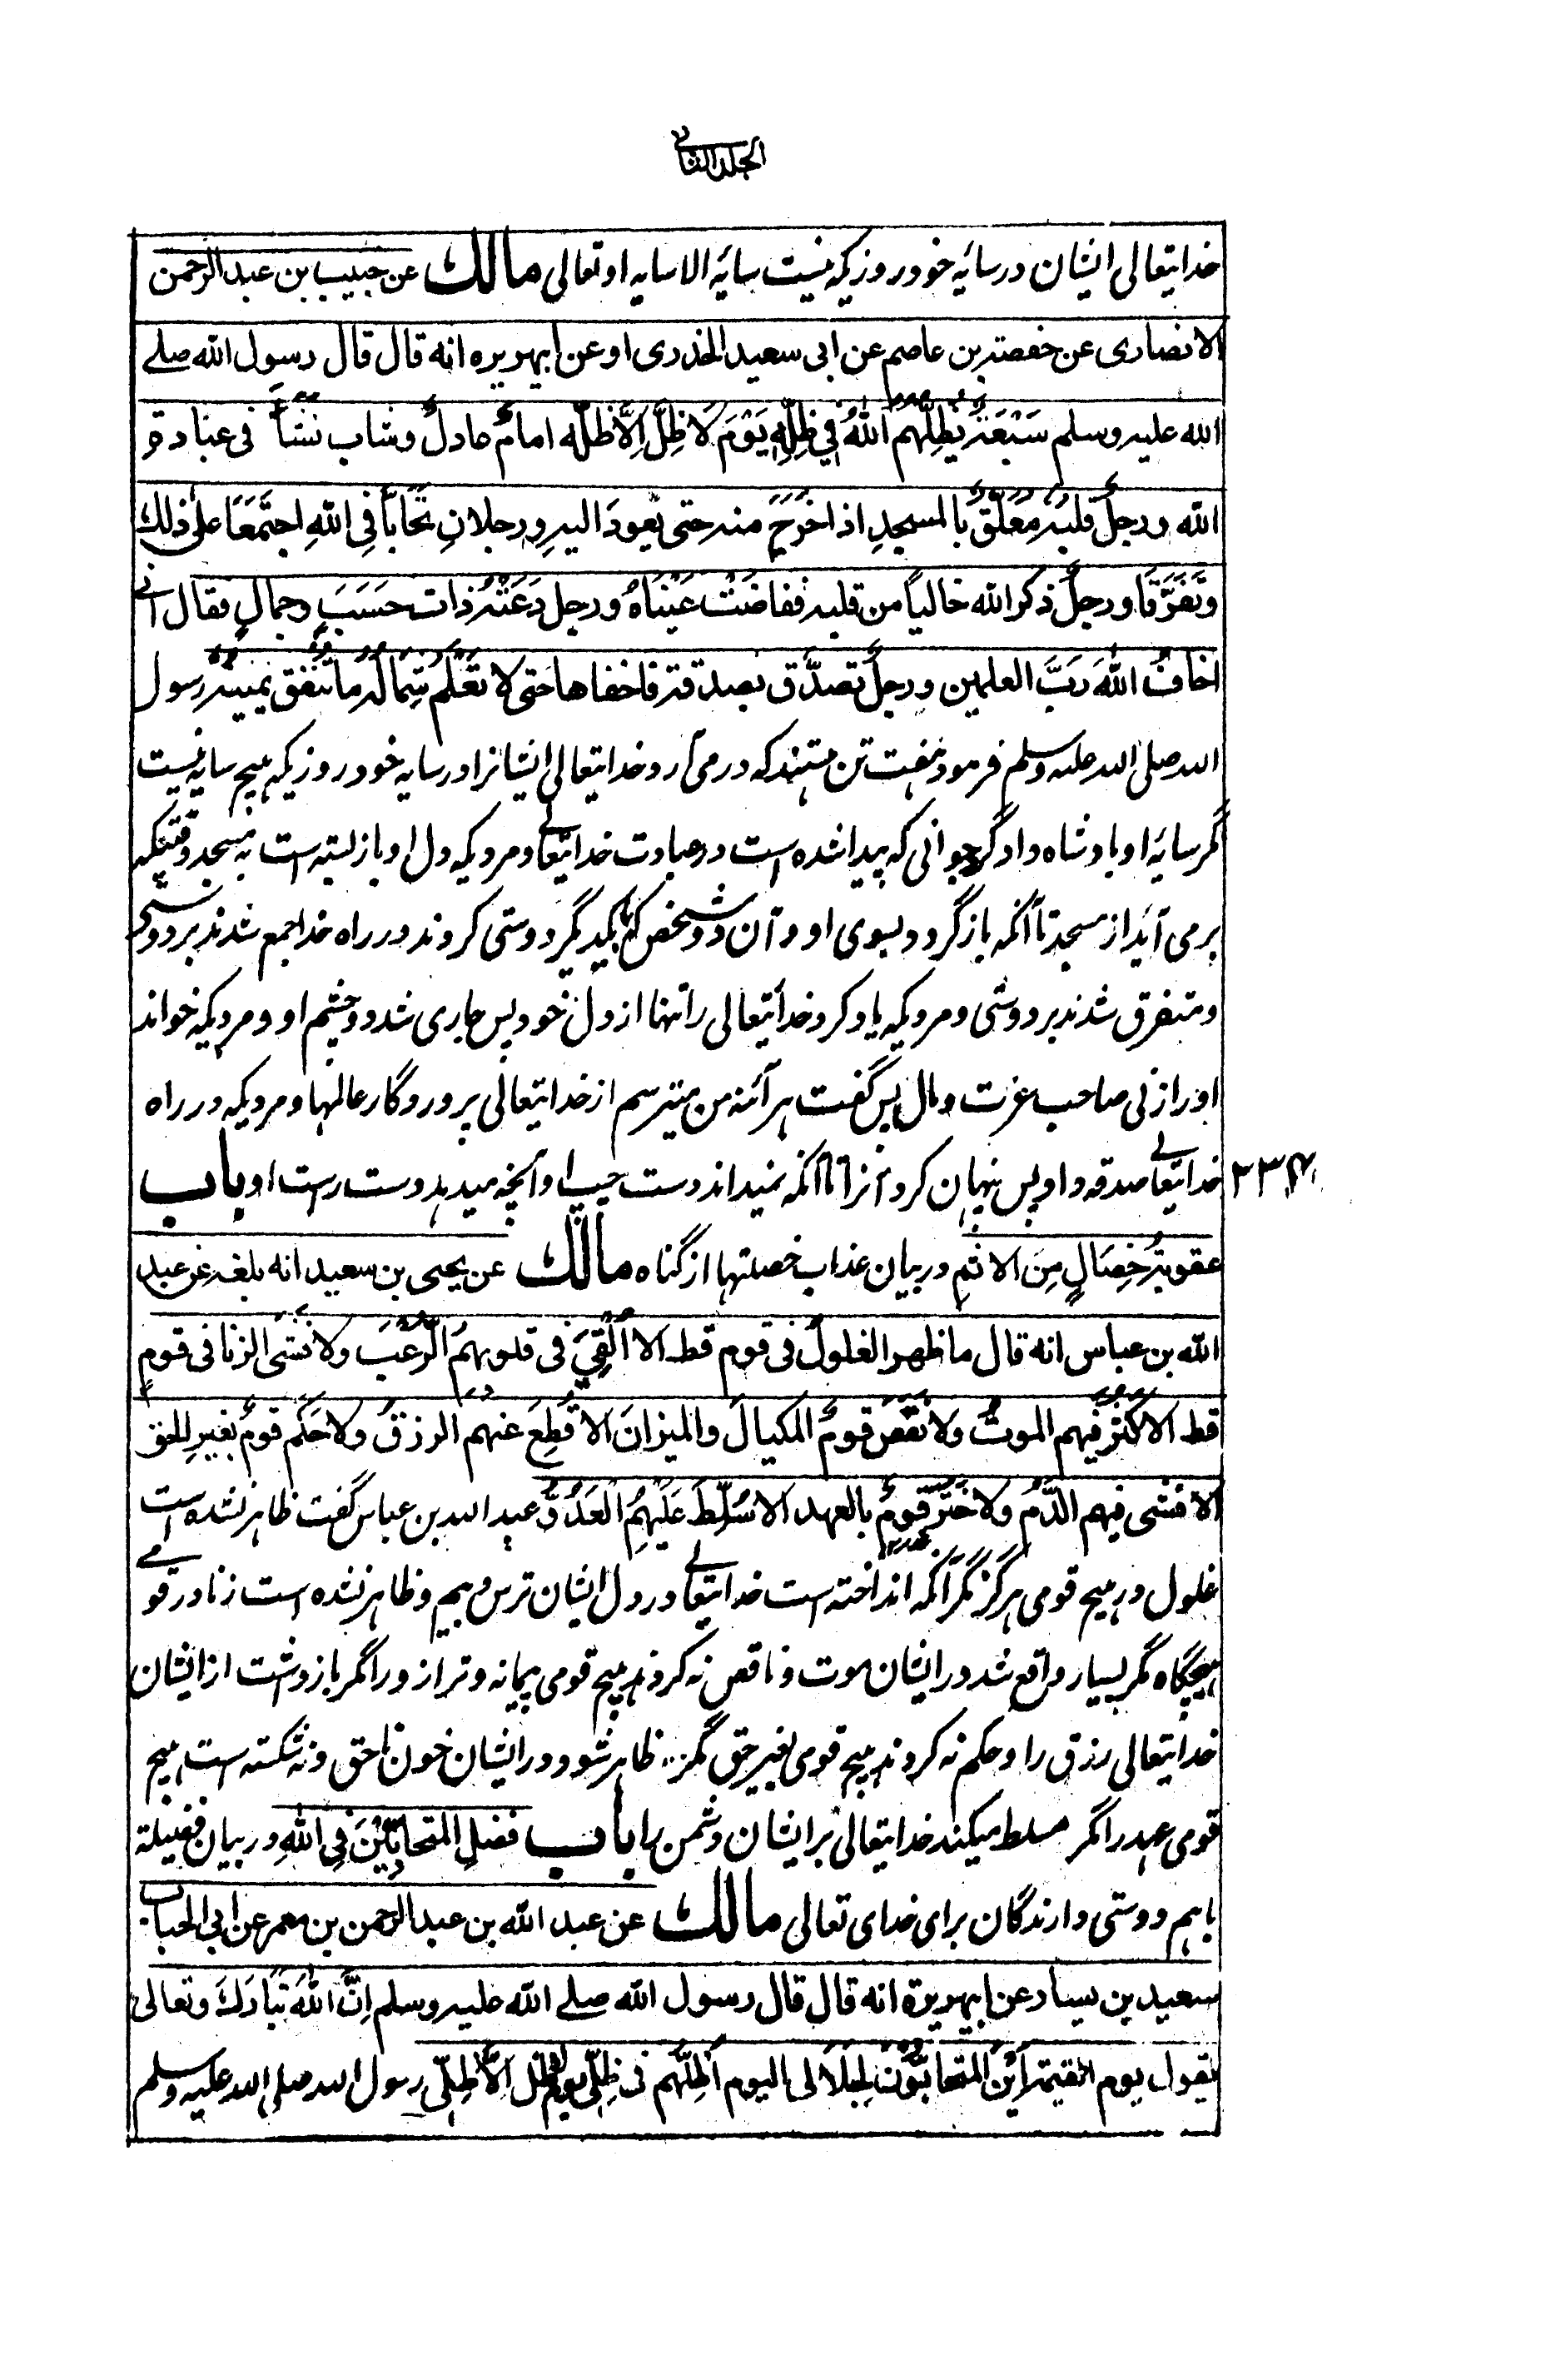 الجلد الثانی
خدایتعالی ایشان در سائیه خود روزیکه نیست سائیه الا سایه او تعالی مالك عن حبیب بن عبد الرحمن
الانصاری عن حفصة بن عاصم عن ابی سعید الخدری او عن ابیهریره انه قال قال رسول الله صلے
الله علیه وسلم سَبْعَةٌ یُظِلُّهم اللهُ فِي ظِلِّهِ یَوْمَ لَا ظِلَّ اِلَّا ظلّه امامٌ عادلٌ وشاب نَشَأَ فی عبادة
الله ورجلٌ قلبُه مُعَلَّقٌ بالمسجدِ اذا خَرَجَ منه حتی یعودَ الیهِ ورجلانِ تحَابَّا فِی اللهِ اجتَمَعَا علی ذلك
وتَفَرَّقَا ورجلٌ ذکر الله خالیاً من قلبه ففاضَتْ عَیْنَاهُ ورجل دَعَتْهُ ذات حَسَبٍ وجمالٍ فقال انی
اخافُ اللهَ رَبَّ العلمین ورجلٌ تصدَّق بصدقة فاخفاها حَتی لا تَعْلَمَ شِمَالُه مَا تُنْفِق یَمِینُه رسول
الله صلی الله علیه وسلم فرمود هفت تن هستند که در می آرد خدایتعالی ایشانرا در سایه خود روزیکه هیچ سایه نیست
مگر سایۀ او بادشاه دادگر جوانی که پیدا شده است در عبادت خدایتعالی و مردیکه دل او باز بسته است به مسجد وقتیکه
بر می آید از مسجد تا آنکه باز گردد بسوی او و آن دو شخص که با یکدیگر دوستی کردند در راه خدا جمع شدند بر دوستی
و متفرق شدند بر دوستی و مردیکه یاد کرد خدایتعالی را تنها از دل خود پس جاری شد دو چشم او و مردیکه خواند
او را زنی صاحب عزت و مال پس گفت هر آئنه من میترسم از خدایتعالی پروردگار عالمها و مردیکه در راه
خدایتعالی صدقه داد پس پنهان کرد آنرا تا آنکه نمیداند دست چپ او آنچه میدهد دست راست او باب
عقوبةُ خِصَالٍ مِنَ الاثم در بیان عذاب خصلتها از گناه مالك عن یحیی بن سعید انه بلغه عن عبد
الله بن عباس انه قال ما ظهر الغلولُ فی قوم قط الا اُلْقِيَ فی قلوبهمُ الرُّعْبَ ولا فَشَی الزنا فی قومٍ
قط الا کَثُرَ فیهم الموتُ ولا نَقَصَ قومٌ المکیالَ والمیزانَ الا قُطِعَ عنهم الرزقُ ولا حَکَمَ قومٌ بغیرِ الحق
الا فَشی فیهم الدَّمُ ولا خَتَرَ قومٌ بالعهد الا سُلِّطَ عَلَیْهِمُ العَدُوُّ عبد الله بن عباس گفت ظاهر نشده است
غلول در هیچ قومی هرگز مگر آنکه انداخته است خدایتعالی در دل ایشان ترس و بیم و ظاهر نشده است زنا در قومی
هیچگاه مگر بسیار واقع شد در ایشان موت و ناقص نه کردند هیچ قومی پیمانه و ترازو را مگر باز داشت از ایشان
خدایتعالی رزق را و حکم نه کردند هیچ قومی بغیر حق مگر ظاهر شود در ایشان خون ناحق و نه شکسته است هیچ
قومی عهد را مگر مسلط میکند خدایتعالی بر ایشان دشمن را باب فضلِ المتحابّیْنَ فِی اللهِ در بیان فضیلة
باهم دوستی دارندگان برای خدای تعالی مالك عن عبد الله بن عبد الرحمن بن معمر عن ابی الحباب
سعید بن یسار عن ابیهریرة انه قال قال رسول الله صلے الله علیه وسلم اِنَّ اللهَ تبَارَكَ وتعالی
یقول یوم القیمة اَیْنَ المتحابُّوْنَ لِجَلَالی الیوم اُظِلُّهم فی ظِلِّی یوم لا ظل اِلَّا ظِلِّی رسول الله صلی الله علیه وسلم